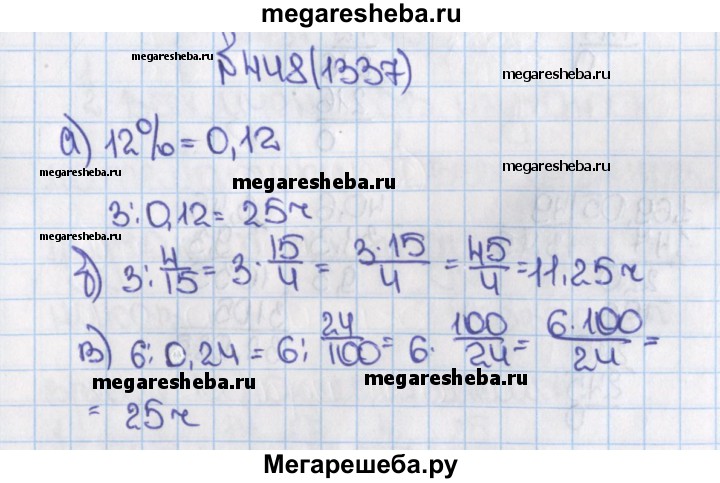 megaresheba.ru
№448(1337)
megaresheba.ru
megaresheba.ru
а) 12% = 0,12
megaresheba.ru
megaresheba.ru
megaresheba.ru
3:0,12 = 25 г
megaresheba.ru
б) 3: 4/15 = 3· 15/4 = 3·15/4 = 45/4 = 11,25 г
в) 6: 0,24 = 6: 24/100 = 6· 100/24 = 6·100/24 =
megaresheba.ru
megaresheba.ru
= 25 г
Мегарешеба.ру